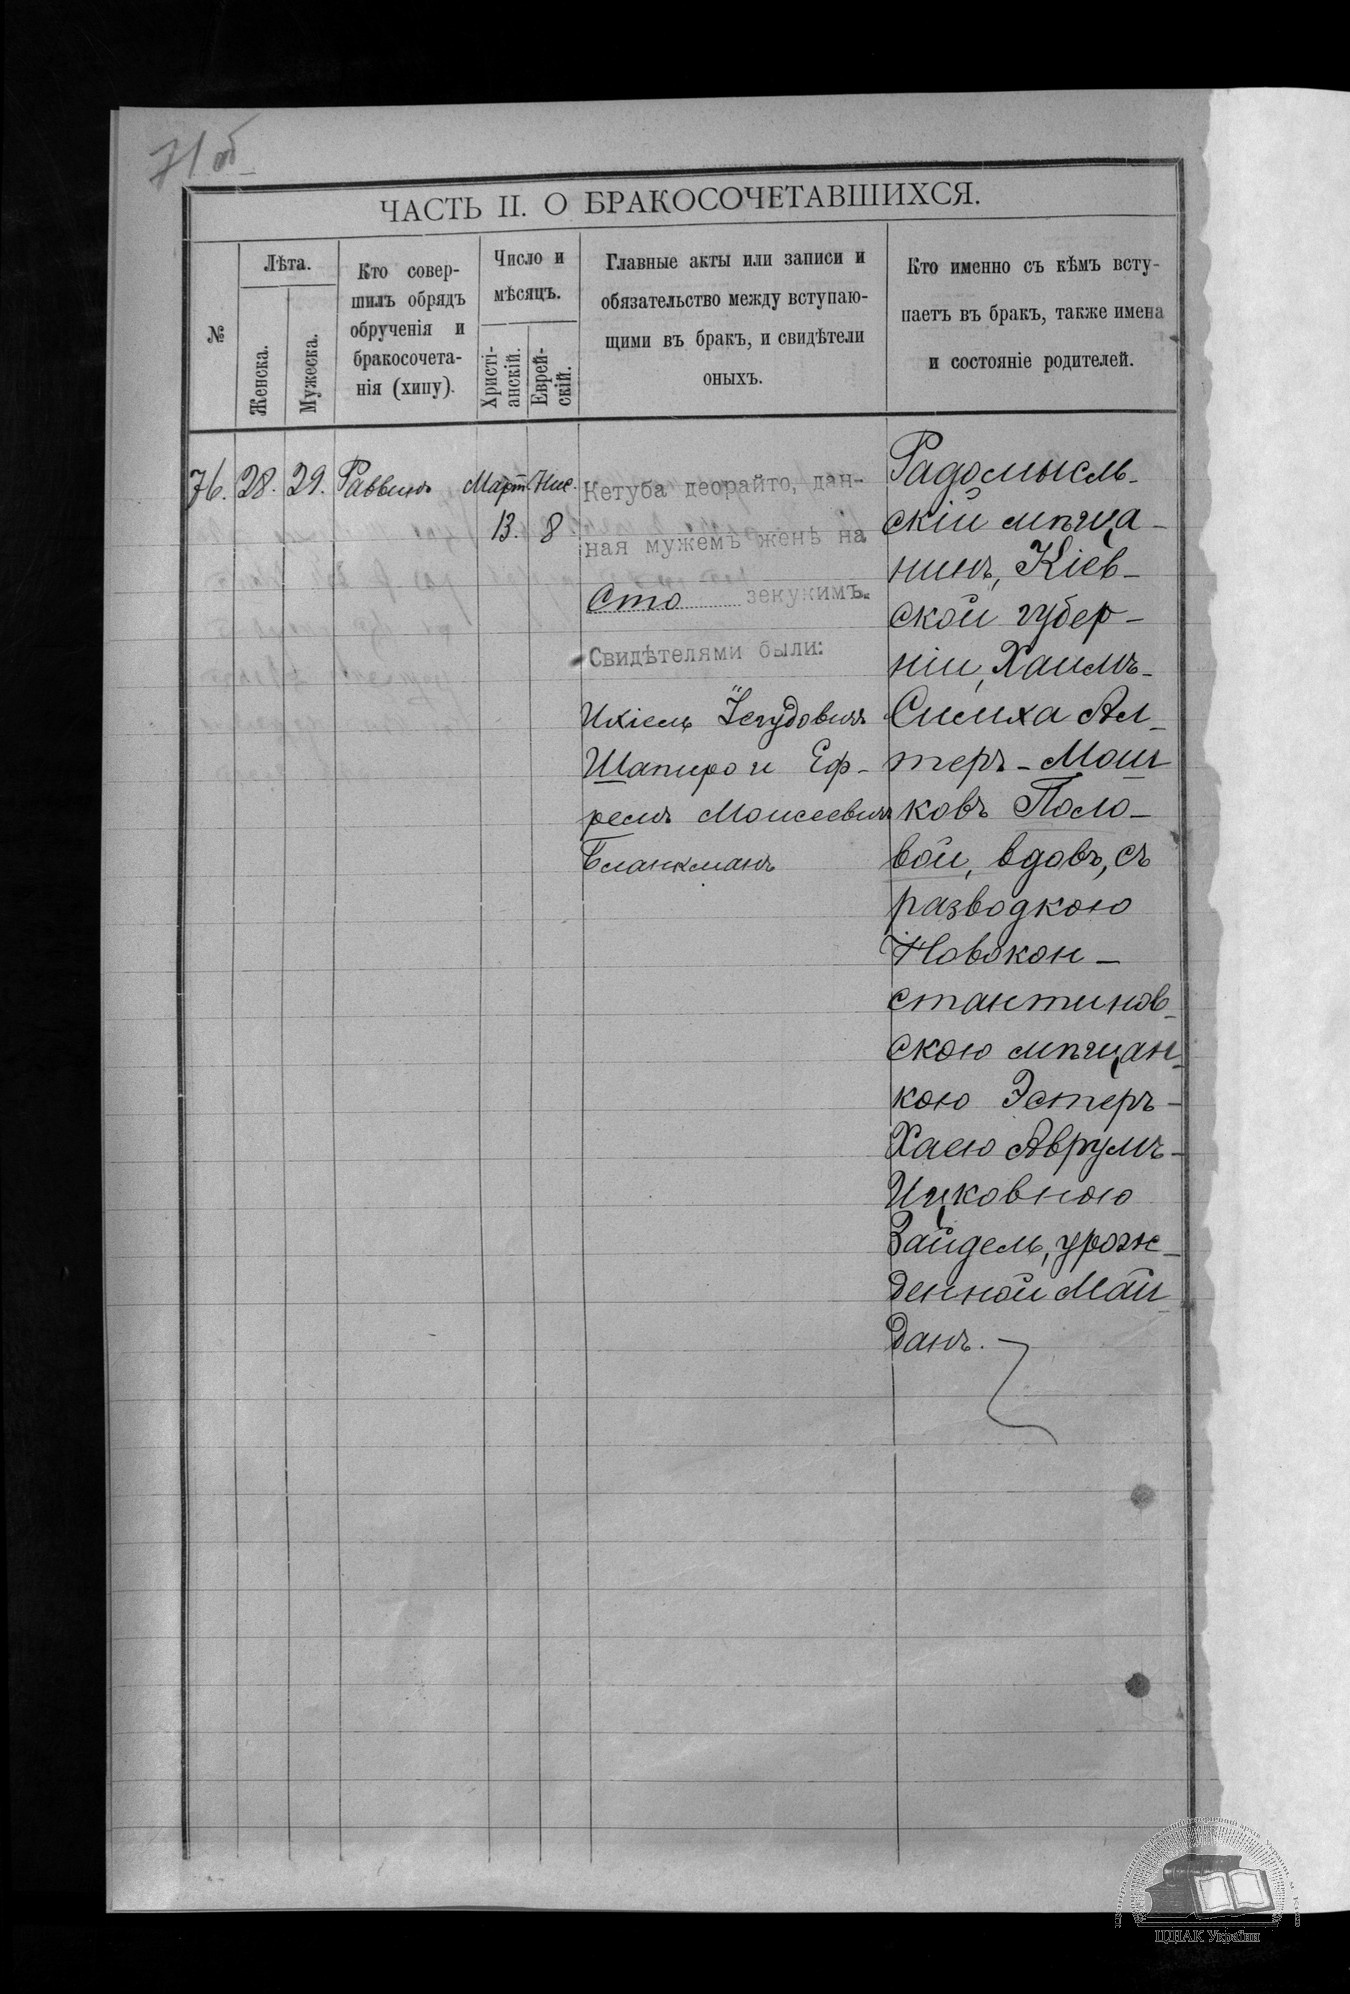 71 об
ЧАСТЬ II. О БРАКОСОЧЕТАВШИХСЯ.
№
Лѣта.
Женска.
Мужеска.
Кто совер-
шилъ обрядъ
обрученія и
бракосочета-
нія (хипу).
Число и
мѣсяцъ.
Христі-
анскій.
Еврей-
скій.
Главные акты или записи и
обязательство между вступаю-
щими въ бракъ, и свидѣтели
оныхъ.
Кто именно съ кѣмъ всту-
паетъ въ бракъ, также имена
и состояніе родителей.
76.
28.
29.
Раввинъ
Март.
13.
Нис.
8
Кетуба деорайто, дан-
ная мужемъ женѣ на
Сто зекукимъ.
Свидѣтелями были:
Ихіель Іегудовичъ
Шапиро и Еф-
ремъ Моисеевичъ
Бланкманъ
Радомысль-
скій мѣща-
нинъ, Кіев-
ской губер-
ніи, Хаимъ-
Симха Ал-
теръ-Мош
ковъ Поло-
вой, вдовъ, съ
разводкою
Новокон-
стантинов-
скою мѣщан-
кою Эстеръ-
Хаею Аврумъ-
Ицковною
Зайдель, урож-
денной Май
данъ.
ЦДІАК України